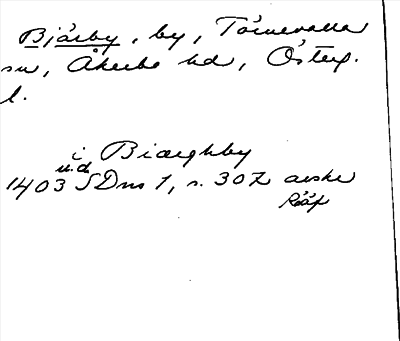 Bjärby, by, Törnevalla
sn, Åkerbo hd, Österg.
l.
i Biærghby
u.d.
1403 SDns 1, s. 307 avskr
Rääf